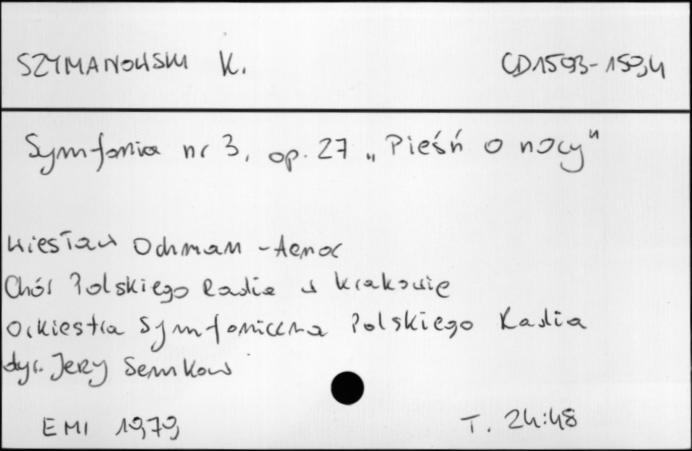 SZYMANOWSKI K. CD1593-1594
Symfonia nr 3, op. 27 „Pieśń o nocy"
Wiesław Ochman - tenor
Chór Polskiego Radia w Krakowie
Orkiestra Symfoniczna Polskiego Radia
dyr. Jerzy Semkow
EMI 1979 T. 24:48